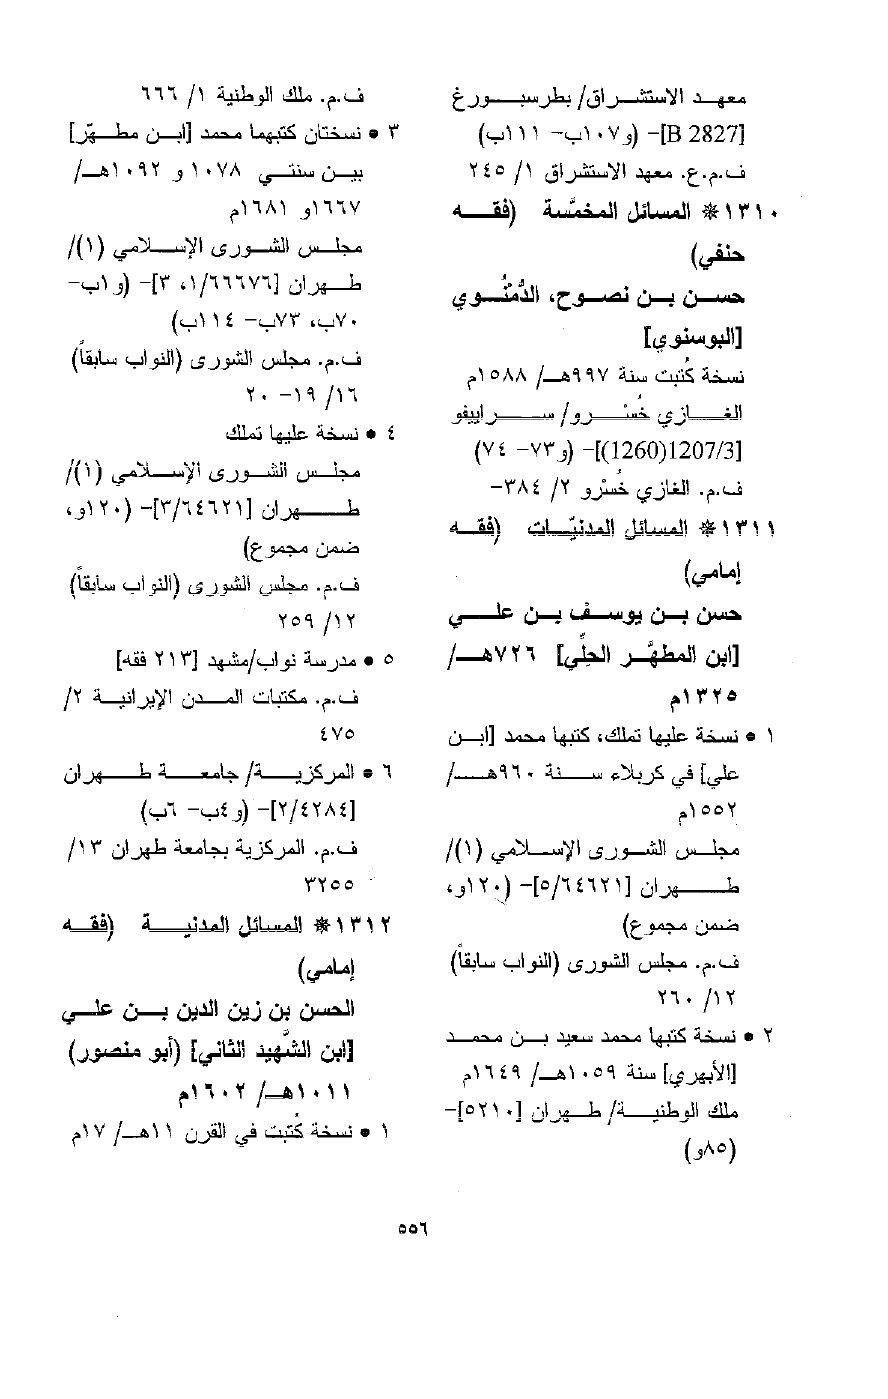 معهد الاستشراق/ بطرسبورغ
[B 2827]– (و١٠٧ب– ١١١ب)
ف.م.ع. معهد الاستشراق ١/ ٢٤٥
١٣١٠* المسائل المخمَّسة (فقه
حنفي)
حسن بن نصوح، الدُّمنُوي
[البوسنوي]
نسخة كُتبت سنة ٩٩٧هـ/ ١٥٨٨م
الغازي خُسْرو/ سراييفو
[1207/3(1260)]– (و٧٣– ٧٤)
ف.م. الغازي خُسْرو ٢/ ٣٨٤–
١٣١١* المسائل المدنيّات (فقه
إمامي)
حسن بن يوسف بن علي
[ابن المطهَّر الحلِّي] ٧٢٦هـ/
١٣٢٥م
١ • نسخة عليها تملك، كتبها محمد [ابن
علي] في كربلاء سنة ٩٦٠هـ/
١٥٥٢م
مجلس الشورى الإسلامي (١)/
طهران [٥/٦٤٦٢١]– (١٢٠و،
ضمن مجموع)
ف.م. مجلس الشورى (النواب سابقاً)
١٢/ ٢٦٠
٢ • نسخة كتبها محمد سعيد بن محمد
[الأبهري] سنة ١٠٥٩هـ/ ١٦٤٩م
ملك الوطنية/ طهران [٥٢١٠]–
(٨٥و)
ف.م. ملك الوطنية ١/ ٦٦٦
٣ • نسختان كتبهما محمد [ابن مطهّر]
بين سنتي ١٠٧٨ و ١٠٩٢هـ/
١٦٦٧و ١٦٨١م
مجلس الشورى الإسلامي (١)/
طهران [١/٦٦٦٧٦، ٣]– (و١ب–
٧٠ب، ٧٣ب– ١١٤ب)
ف.م. مجلس الشورى (النواب سابقاً)
١٦/ ١٩– ٢٠
٤ • نسخة عليها تملك
مجلس الشورى الإسلامي (١)/
طهران [٣/٦٤٦٢١]– (١٢٠و،
ضمن مجموع)
ف.م. مجلس الشورى (النواب سابقاً)
١٢/ ٢٥٩
٥ • مدرسة نواب/مشهد [٢١٣ فقه]
ف.م. مكتبات المدن الإيرانية ٢/
٤٧٥
٦ • المركزية/ جامعة طهران
[٢/٤٢٨٤]– (و٤ب– ٦ب)
ف.م. المركزية بجامعة طهران ١٣/
٣٢٥٥
١٣١٢* المسائل المدنية (فقه
إمامي)
الحسن بن زين الدين بن علي
[ابن الشَّهيد الثاني] (أبو منصور)
١٠١١هـ/ ١٦٠٢م
١ • نسخة كُتبت في القرن ١١هـ/ ١٧م
٥٥٦